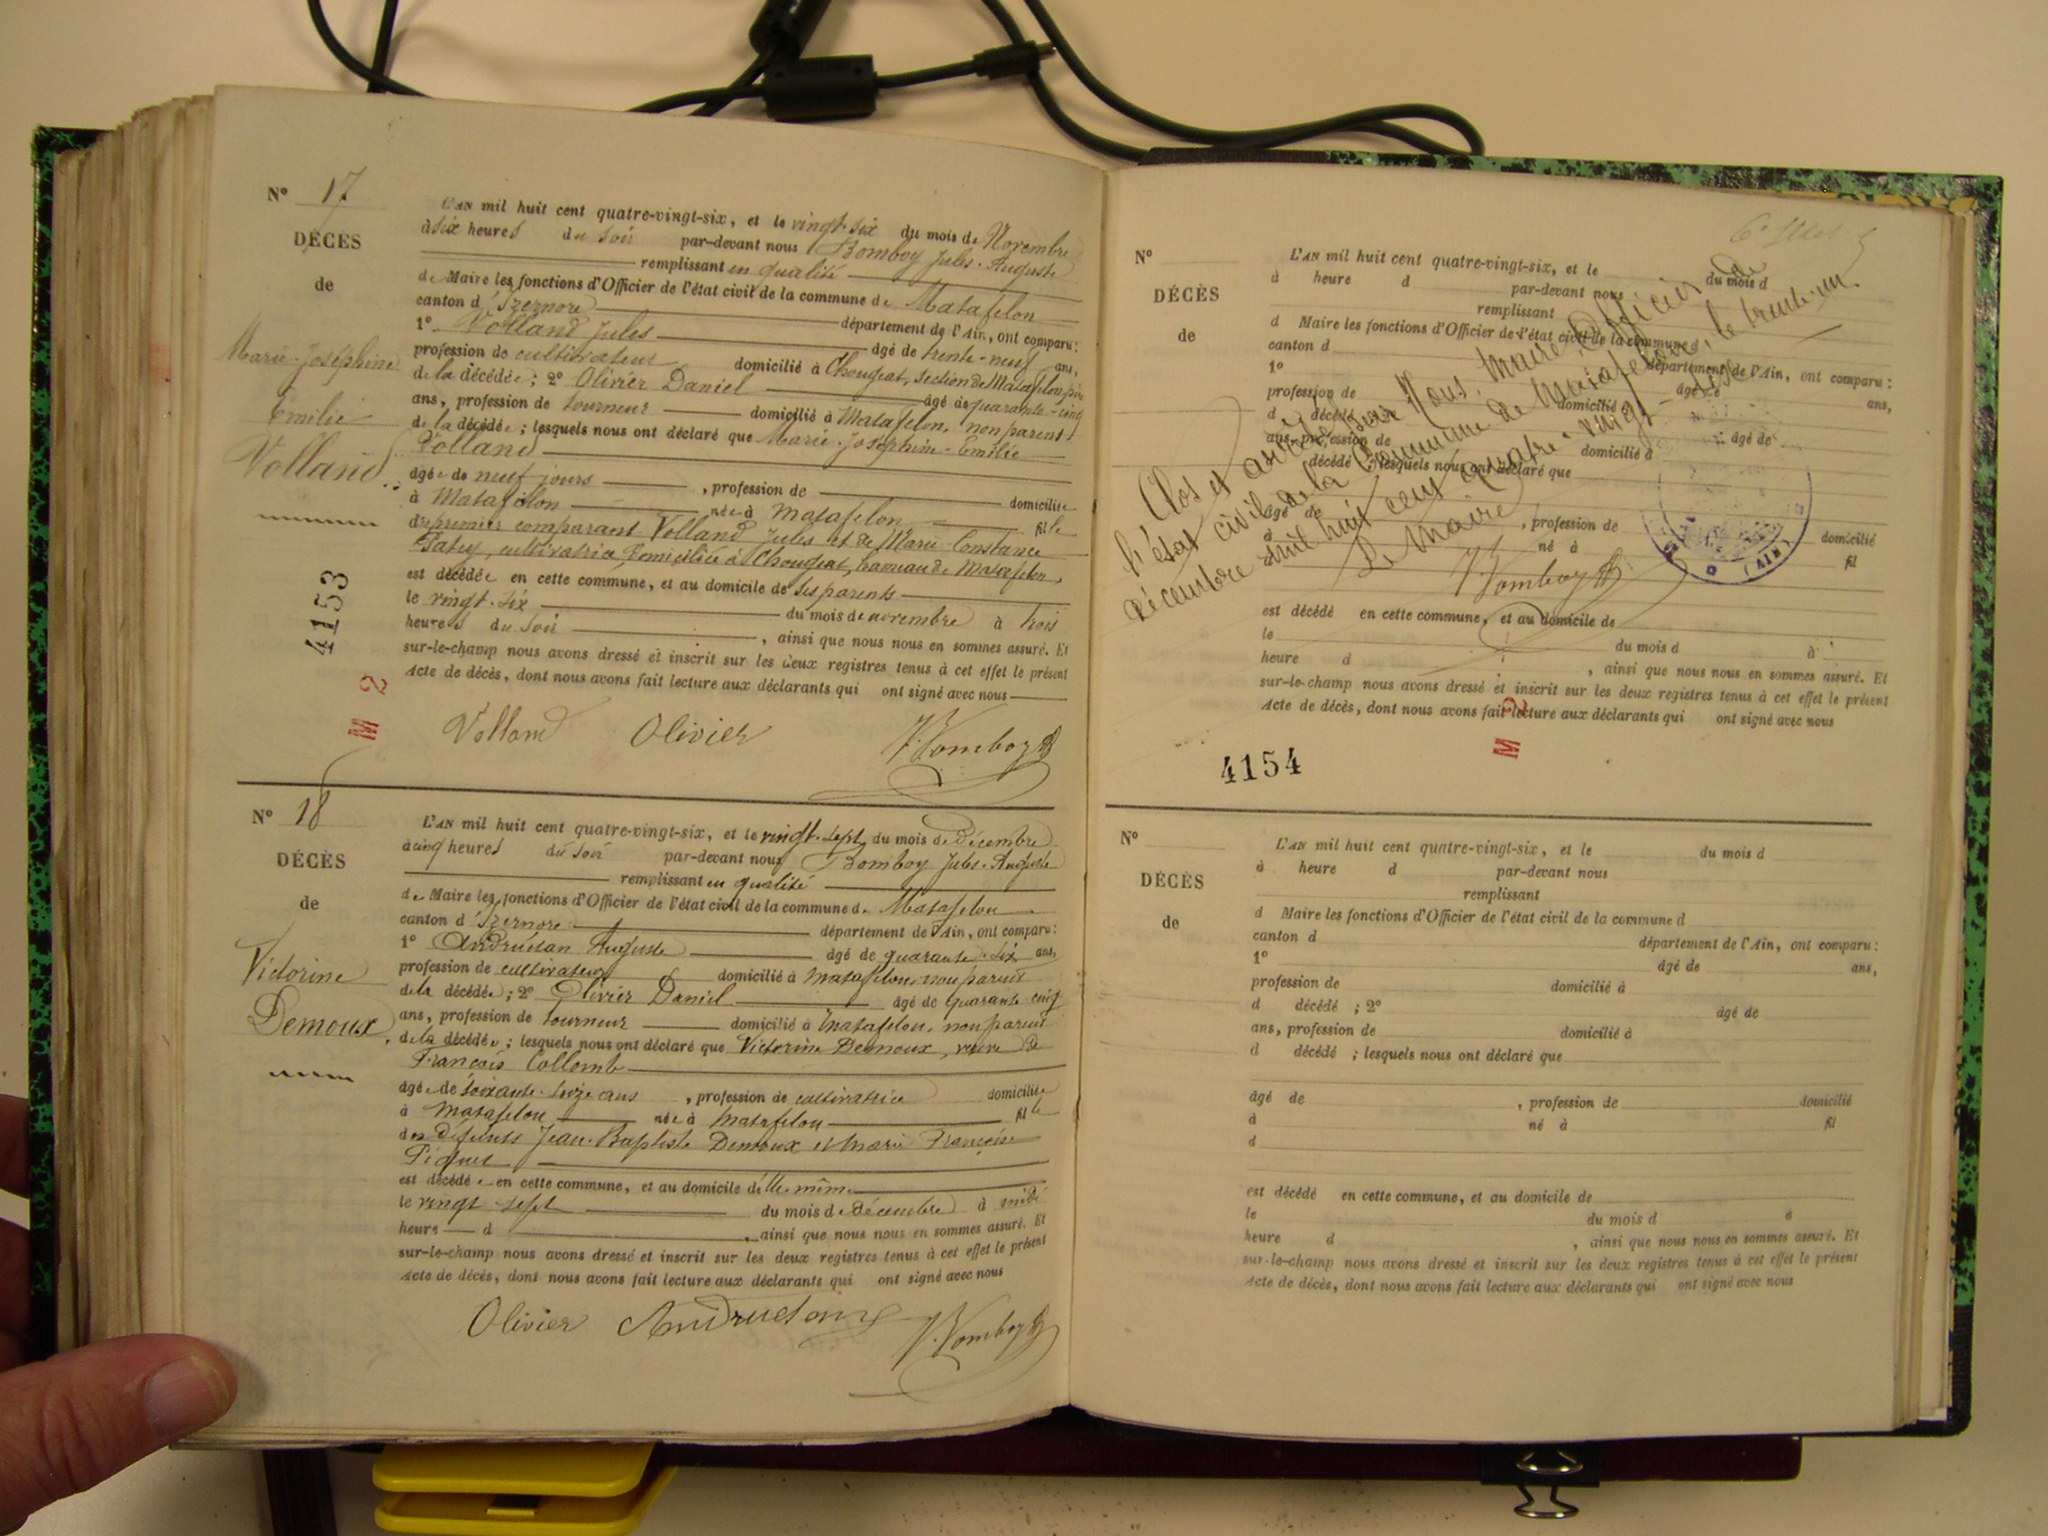 N° 17
DÉCÈS
de
Marie-Joséphine
Emilie
Volland
4153
M 2
L'AN mil huit cent quatre-vingt-six, et le vingt-six du mois de Novembre
à six heures du soir par-devant nous Bomboy Jules-Auguste
remplissant en qualité
de Maire les fonctions d'Officier de l'état civil de la commune de Matafelon
canton d'Izernore département de l'Ain, ont comparu :
1° Volland Jules âgé de trente-neuf ans,
profession de cultivateur domicilié à Chougeat, section de Matafelon, père
de la décédée ; 2° Olivier Daniel âgé de quarante-cinq
ans, profession de tourneur domicilié à Matafelon, non parent
de la décédée ; lesquels nous ont déclaré que Marie-Joséphine-Emilie
Volland
âgée de neuf jours , profession de domiciliée
à Matafelon née à Matafelon fille
du premier comparant Volland Jules et de Marie Constance
cultivatrice, domiciliée à Chougeat, hameau de Matafelon,
est décédée en cette commune, et au domicile de ses parents
le vingt-six du mois de novembre à trois
heures du soir , ainsi que nous nous en sommes assuré. Et
sur-le-champ nous avons dressé et inscrit sur les deux registres tenus à cet effet le présent
Acte de décès, dont nous avons fait lecture aux déclarants qui ont signé avec nous
Volland Olivier J. Bomboy
N° 18
DÉCÈS
de
Victorine
Demoux
L'AN mil huit cent quatre-vingt-six, et le vingt-sept du mois de Décembre
à cinq heures du soir par-devant nous Bomboy Jules-Auguste
remplissant en qualité
de Maire les fonctions d'Officier de l'état civil de la commune de Matafelon
canton d'Izernore département de l'Ain, ont comparu :
1° Andruétan Auguste âgé de quarante-six ans,
profession de cultivateur domicilié à Matafelon, non parent
de la décédée ; 2° Olivier Daniel âgé de quarante cinq
ans, profession de tourneur domicilié à Matafelon, non parent
de la décédée ; lesquels nous ont déclaré que Victorine Demoux, veuve de
François Collomb
âgée de soixante-seize ans , profession de cultivatrice domiciliée
à Matafelon née à Matafelon fille
des défunts Jean-Baptiste Demoux et Marie Françoise
est décédée en cette commune, et au domicile d'elle même
le vingt-sept du mois de décembre à midi
heure d , ainsi que nous nous en sommes assuré. Et
sur-le-champ nous avons dressé et inscrit sur les deux registres tenus à cet effet le présent
Acte de décès, dont nous avons fait lecture aux déclarants qui ont signé avec nous
Olivier Andruétan J. Bomboy
N°
DÉCÈS
de
L'AN mil huit cent quatre-vingt-six, et le du mois d
à heure d par-devant nous
remplissant
d Maire les fonctions d'Officier de l'état civil de la commune d
canton d département de l'Ain, ont comparu :
1° âgé de ans,
profession de domicilié à
d décédé âgé de
ans, profession de domicilié à
décédé ; lesquels nous ont déclaré que
âgé de , profession de domicilié
né à fil
est décédé en cette commune, et au domicile de
le du mois d à
heure d , ainsi que nous nous en sommes assuré. Et
sur-le-champ nous avons dressé et inscrit sur les deux registres tenus à cet effet le présent
Acte de décès, dont nous avons fait lecture aux déclarants qui ont signé avec nous
Clos et arrêté par Nous, Maire, Officier de
l'état civil de la Commune de Matafelon, le trente-un
décembre mil huit cent quatre-vingt-six
Le Maire
J. Bomboy
(AIN)
M 2
4154
N°
DÉCÈS
de
L'AN mil huit cent quatre-vingt-six, et le du mois d
à heure d par-devant nous
remplissant
d Maire les fonctions d'Officier de l'état civil de la commune d
canton d département de l'Ain, ont comparu :
1° âgé de ans,
profession de domicilié à
d décédé ; 2° âgé de
ans, profession de domicilié à
d décédé ; lesquels nous ont déclaré que
âgé de , profession de domicilié
à né à fil
d
est décédé en cette commune, et au domicile de
le du mois d à
heure d , ainsi que nous nous en sommes assuré. Et
sur-le-champ nous avons dressé et inscrit sur les deux registres tenus à cet effet le présent
Acte de décès, dont nous avons fait lecture aux déclarants qui ont signé avec nous